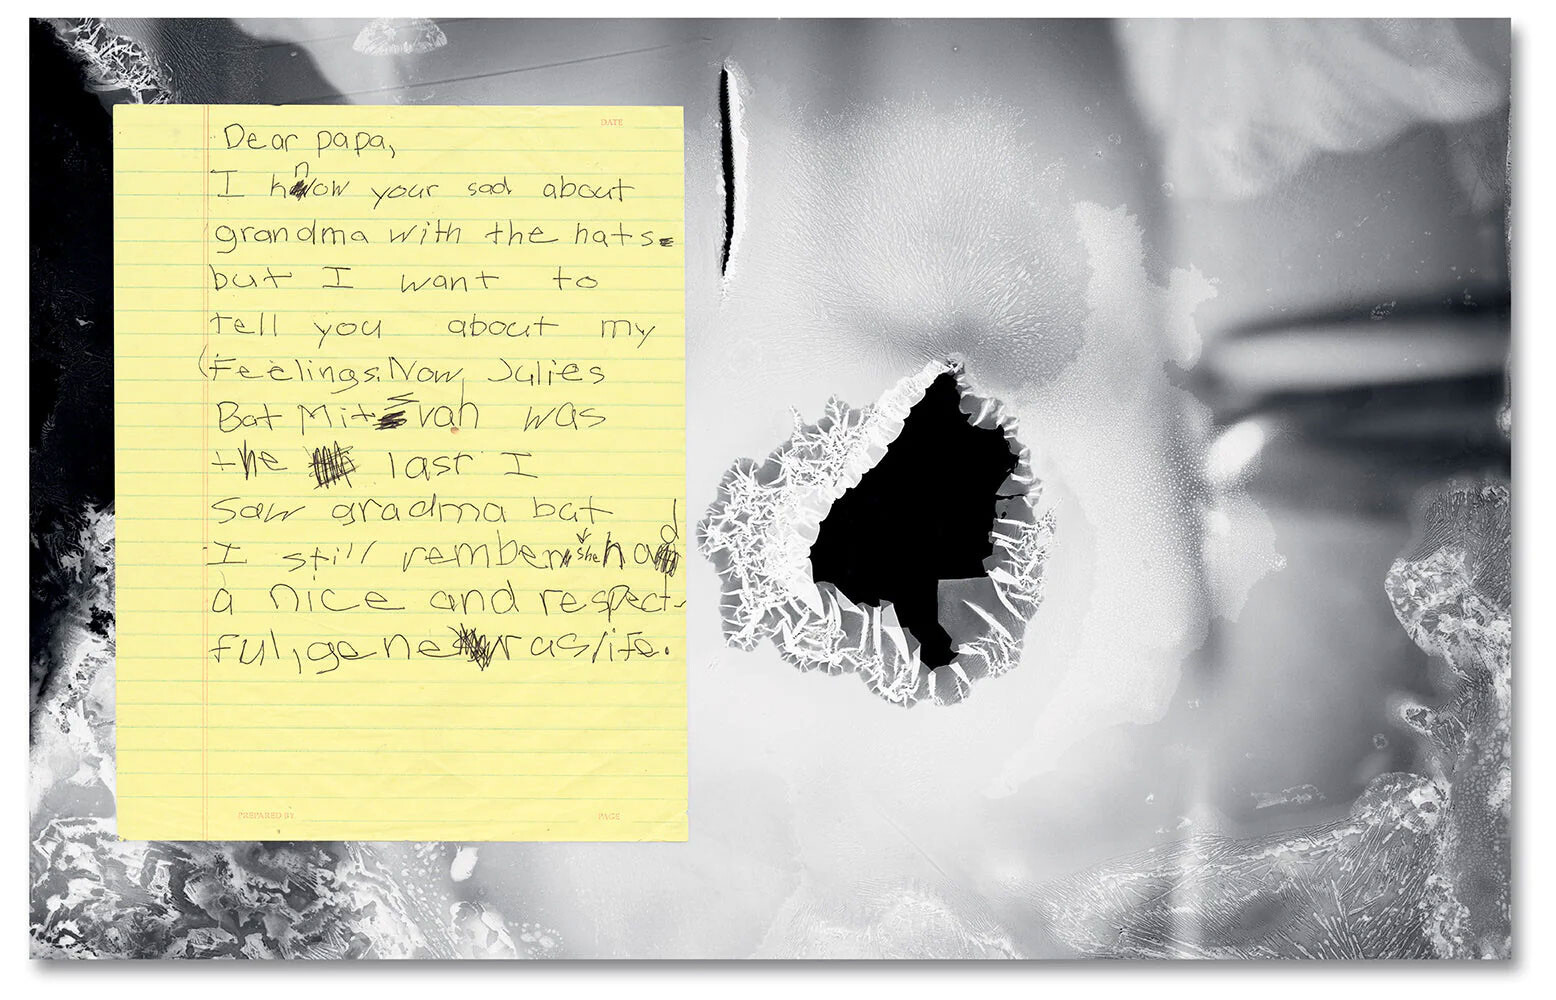 DATE
Dear papa,
I know your sad about
grandma with the hats.
but I want to
tell you about my
feelings. Now, Julies
Bat Mitsvah was
the last I
saw gradma bat
I still rember she had
a nice and respect-
ful, generas life.
PREPARED BY
PAGE